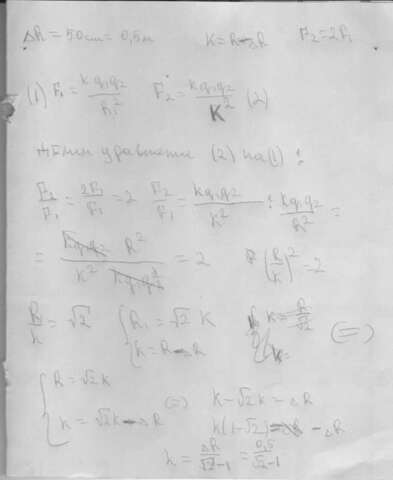 ΔR = 50cm = 0,5м K = R - ΔR F₂ = 2F₁
(1) F₁ = kq₁q₂/R₁² F₂ = kq₁q₂/K² (2)
уравнение (2) на (1) :
F₂/F₁ = 2F₁/F₁ = 2 F₂/F₁ = kq₁q₂/K² : kq₁q₂/R² =
= kq₁q₂ R²/K² kq₁q₂ = 2 (R/K)² = 2
R/K = √2 { R₁ = √2 K K = R/√2 (=)
K = R - ΔR K =
{ R = √2K (=) K - √2K = -ΔR
K = √2K - ΔR K(1-√2) = -ΔR
K = ΔR/√2-1 = 0,5/√2-1